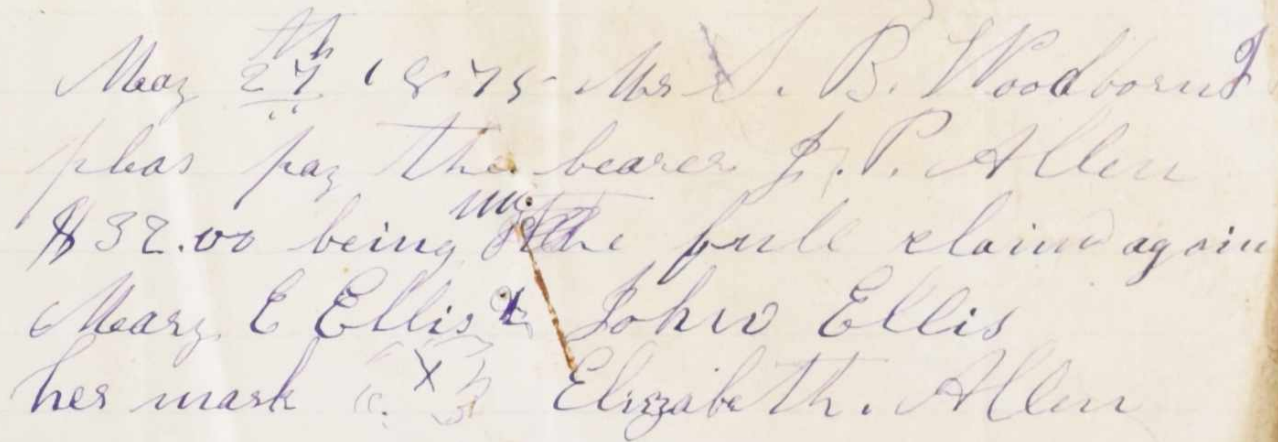 May 27th 1875 Mr S. B. Woodborn
pleas pay the bearer J. P. Allen
$32.00 being my the full claim again
Mary E Ellis & John Ellis
her mark X Elizabeth. Allen